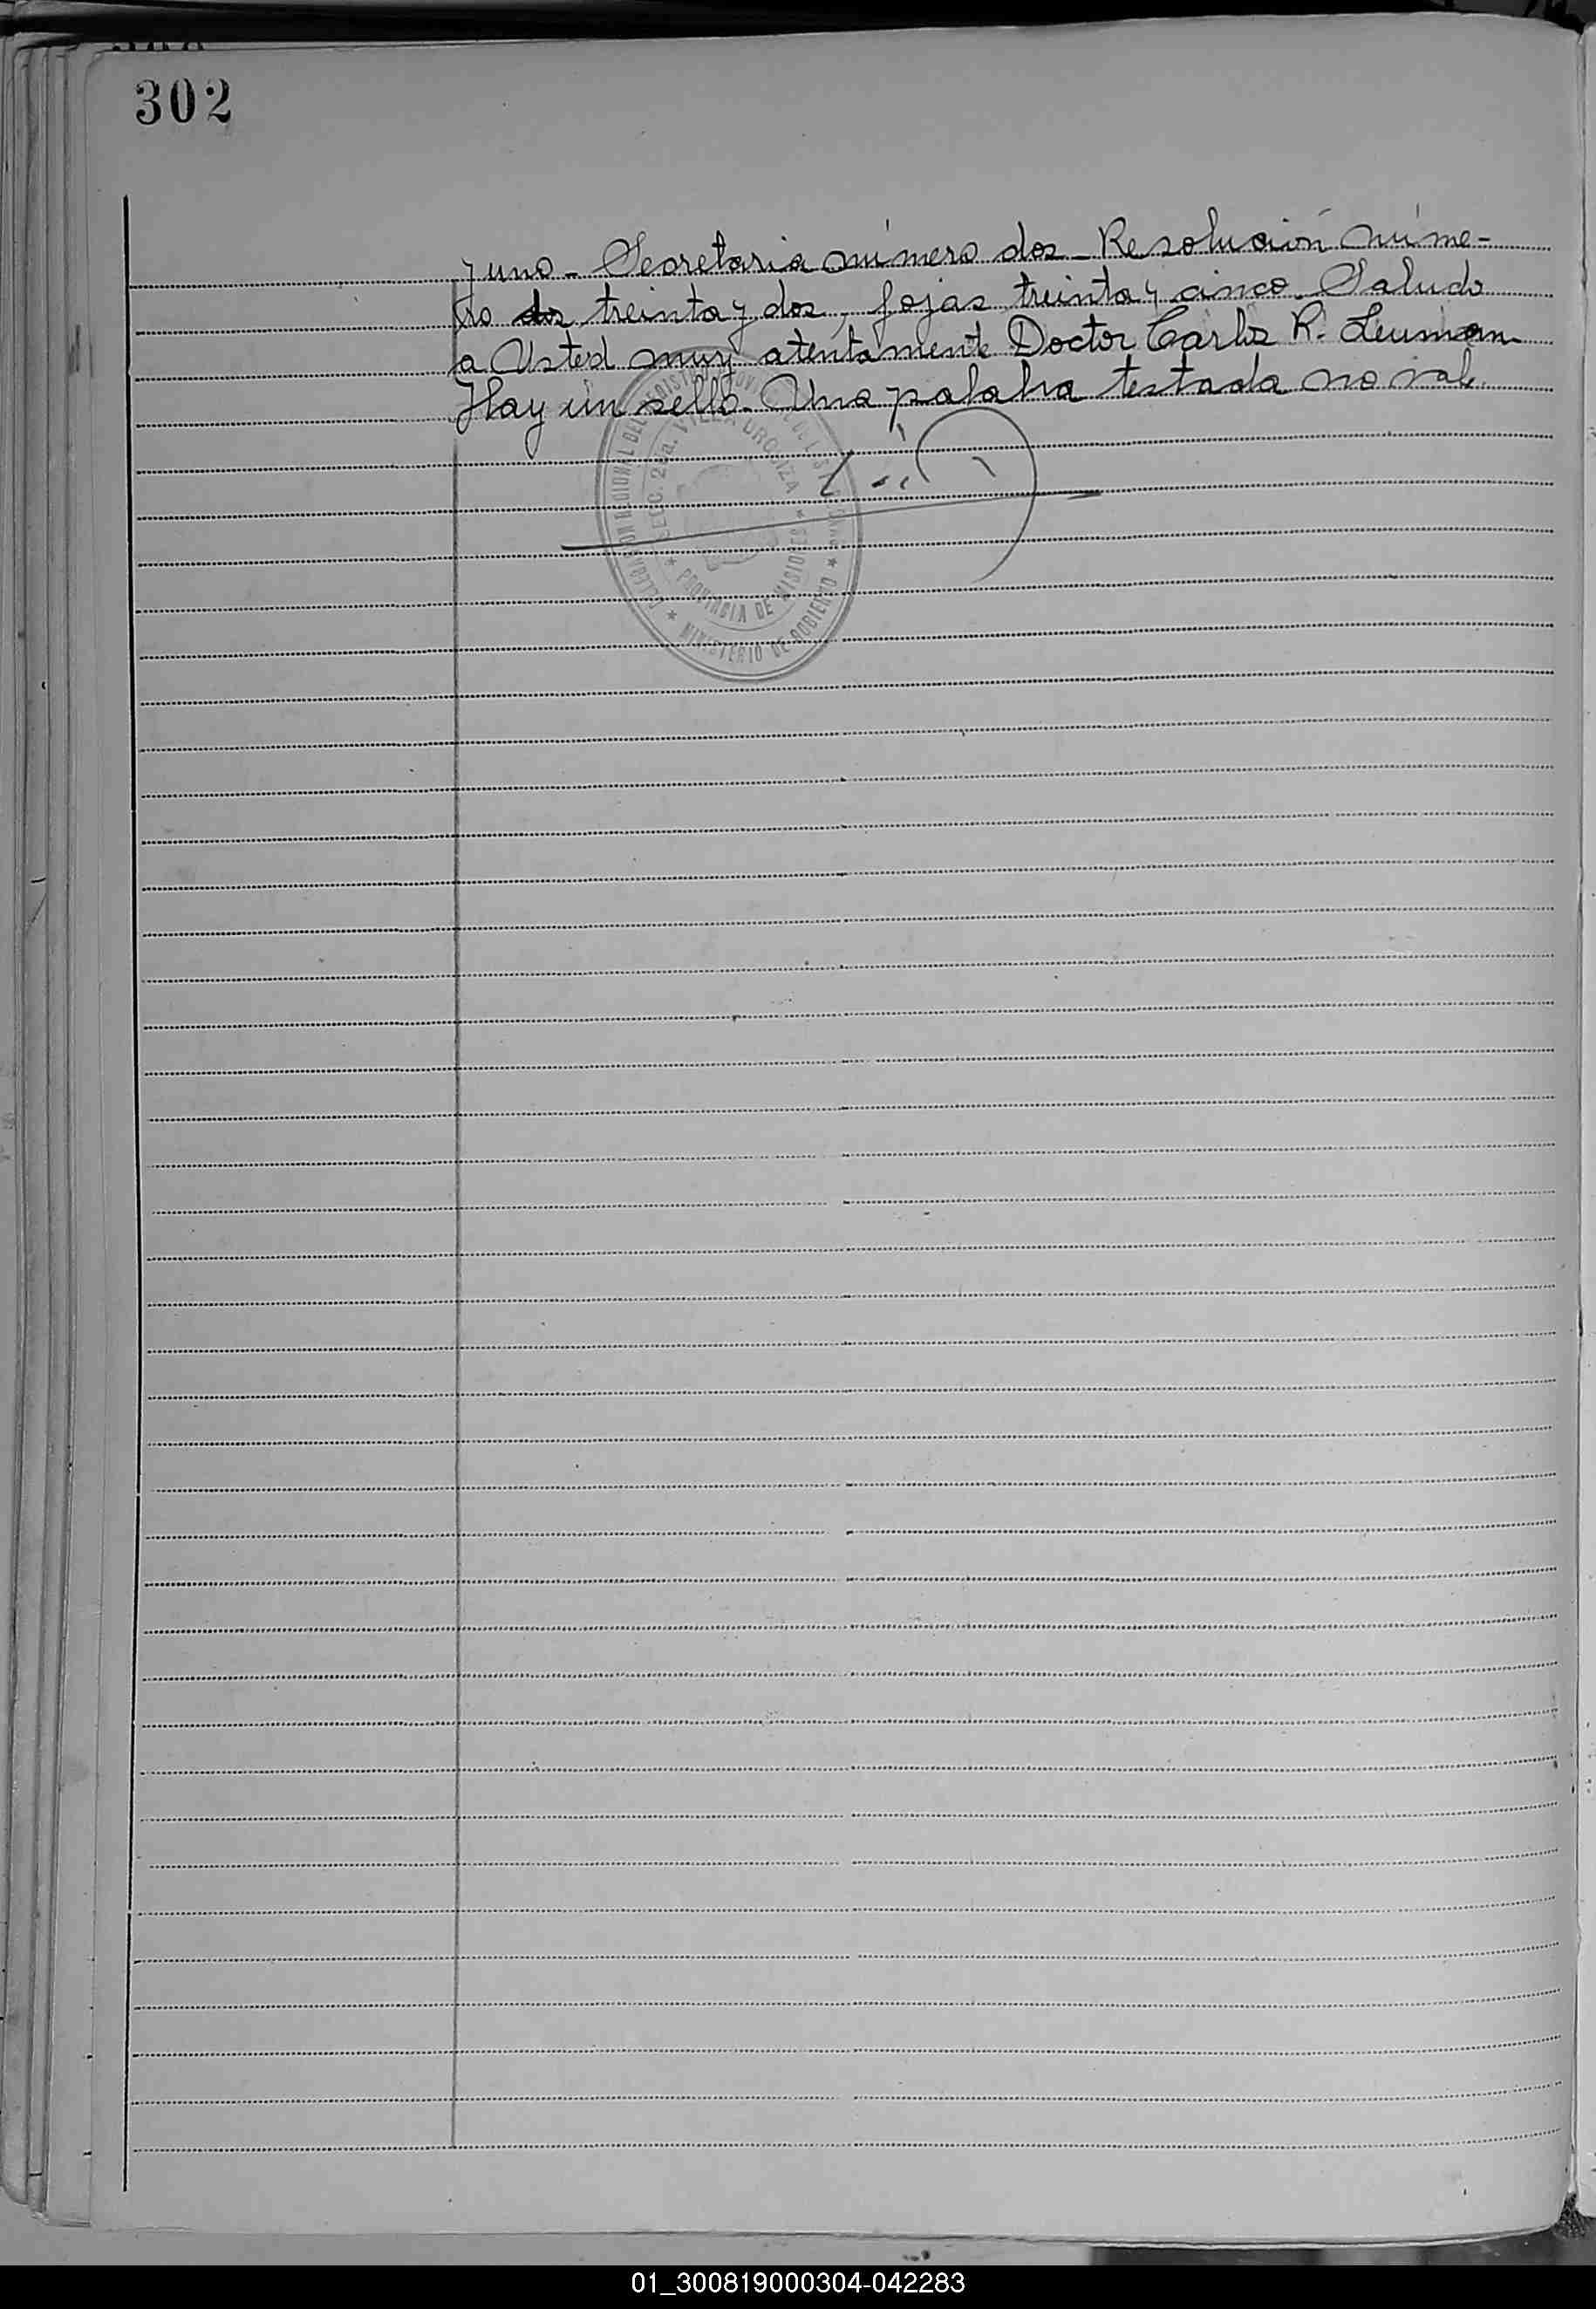 302
y uno - Secretaria número dos - Resolución núme-
ro dos treinta y dos, fojas treinta y cinco. Saludo
a Usted muy atentamente Doctor Carlos R. Leuman.
Hay un sello. Una palabra testada no vale.
DELEGACION REGIONAL DEL REGISTRO PROVINCIAL DE LAS PERSONAS
SECC. 2da. VILLA URQUIZA
PROVINCIA DE MISIONES
MINISTERIO DE GOBIERNO
01_300819000304-042283